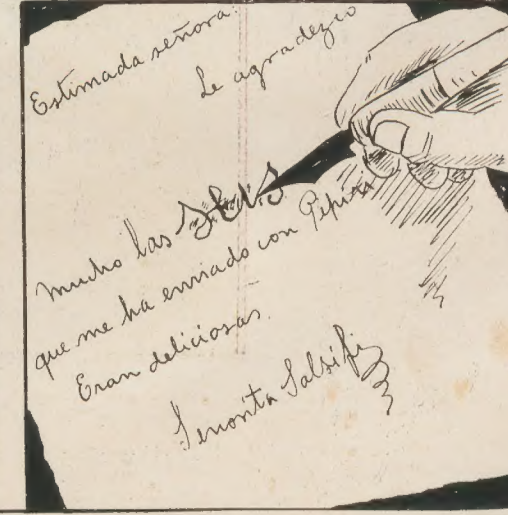 Estimada señora:
Le agradezco
mucho las seis
que me ha enviado con Pepín
Eran deliciosas.
Señorita Salsifí